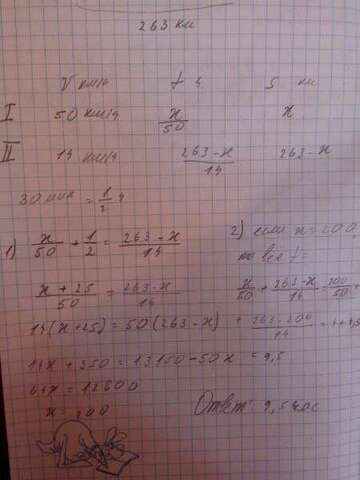 263 км
V км/ч t ч S км
I 50 км/ч x/50 x
II 14 км/ч (263-x)/14 263-x
30 мин = 1/2 ч
1) x/50 + 1/2 = (263-x)/14
(x+25)/50 = (263-x)/14
14(x+25) = 50(263-x)
14x + 350 = 13150 - 50x
64x = 12800
x = 200
2) если x = 200,
то всё t =
x/50 + (263-x)/14 = 200/50 +
+ (263-200)/14 = 4+4,5
= 8,5
Ответ: 8,5 час